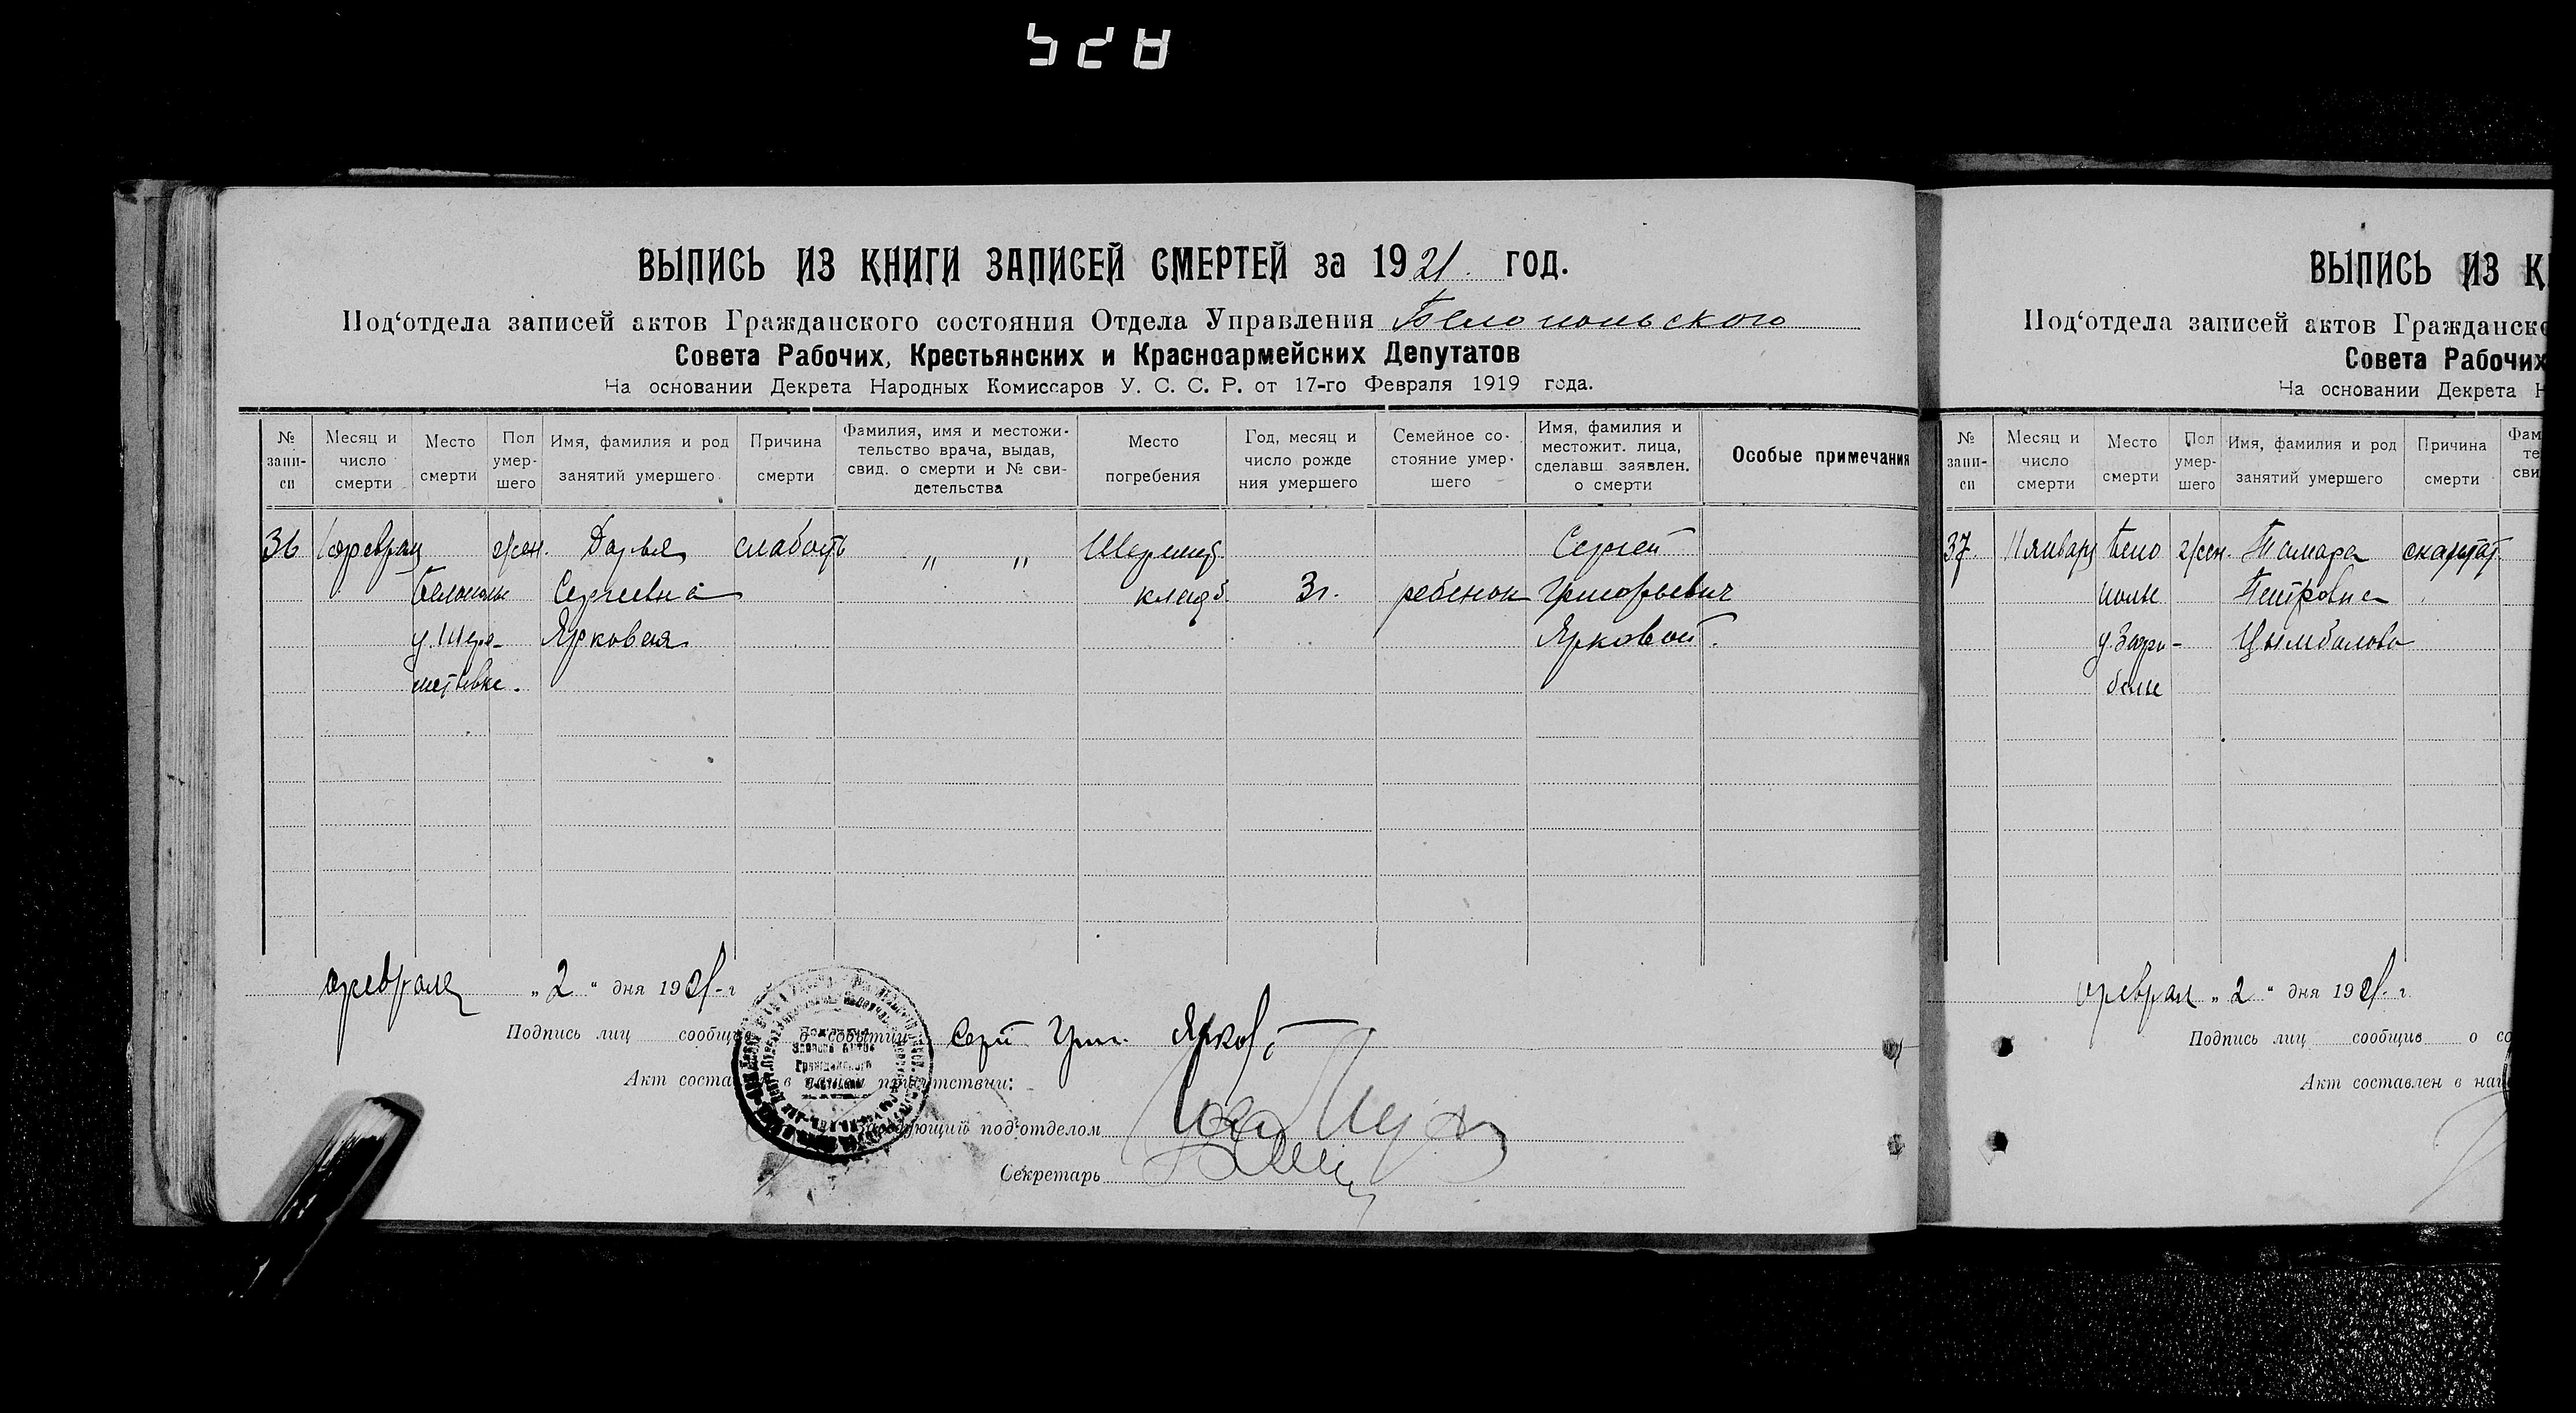 528
ВЫПИСЬ ИЗ КНИГИ ЗАПИСЕЙ СМЕРТЕЙ за 1921 год.
Под‘отдела записей актов Гражданского состояния Отдела Управления Белопольского
Совета Рабочих, Крестьянских и Красноармейских Депутатов
На основании Декрета Народных Комиссаров У. С. С. Р. от 17-го Февраля 1919 года.
№ записи
Месяц и число смерти
Место смерти
Пол умершего
Имя, фамилия и род занятий умершего
Причина смерти
Фамилия, имя и местожительство врача, выдав, свид. о смерти и № свидетельства
Место погребения
Год, месяц и число рождения умершего
Семейное состояние умершего
Имя, фамилия и местожит. лица, сделавш. заявлен. о смерти
Особые примечания
36 1 феврал жен. Дарья слабость " " Сергей
Белополье Сергеевна кладб. 3 г. ребенок Григорьевич
у. Шере- Ярковая Яркової.
метьевке.
февраля „2“ дня 1921 г
Подпись лиц сообщ о событии Серг Григ. Ярков
Акт соста в нашем присутствии:
Заведующий под‘отделом
Секретарь
ВЫПИСЬ ИЗ К
Под‘отдела записей актов Гражданско
Совета Рабочих
На основании Декрета Н
№ записи
Месяц и число смерти
Место смерти
Пол умершего
Имя, фамилия и род занятий умершего
Причина смерти
37. 11 января Бело жен. Тамара скарлат.
полье Петровна
у. Загри- Цымбалова
белье
феврал „2“ дня 1921 г.
Подпись лиц сообщив о со
Акт составлен в наш